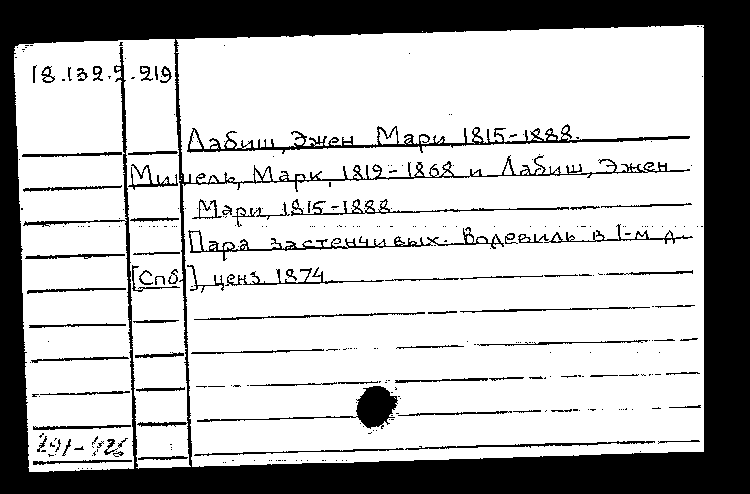 18.132.2.219
Лабиш, Эжен Мари, 1815-1888.
Мишель, Марк, 1812-1868 и Лабиш, Эжен
Мари, 1815-1888
Пара застенчивых. Водевиль в 1-м д.
[Спб.], ценз. 1874